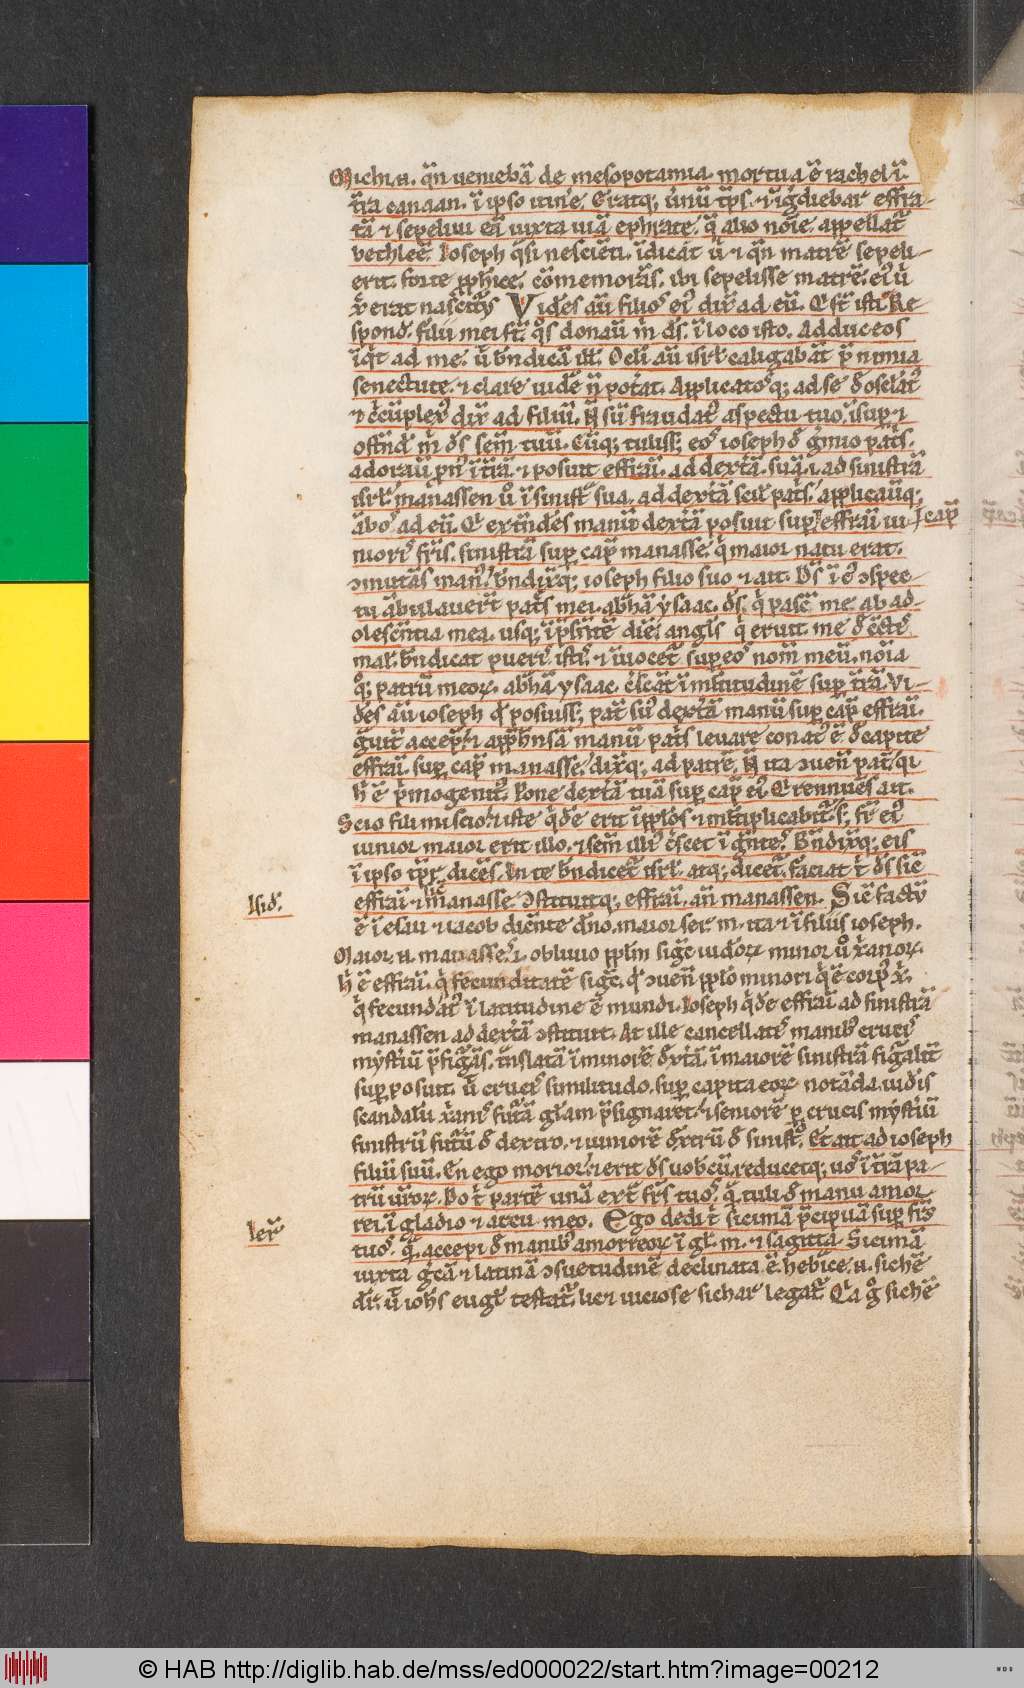 Michi .n. qn̄ veniebā de mesopotamia. mortua ē rachel ī
t̄ra canaan. ī ipso itiñe. Eratq; v̾nū tp̄s. ⁊ īg̾diebar effra-
tā ⁊ sepelivi eā iuxta viā ephrate. q̄ alio noīe. appellat̄
bethleē. Ioseph q̄si nescīeti. īdicat v̾ ⁊ qn̄ matrē sepeli-
erit. forte ꝓph̄ice. cōmemorās. ibi sepelisse matrē. ei᷒ v̾
x̄ erat nascit᷒. Vidēs aū filios ei᷒ dix̄ ad eū. Q ſt̄ isti. Re-
spond̾. filii mei st̄. qͦs donav̄ m̄ ds̄. ī loco isto. Adduc eos
īqͥt ad me. v̾ bn̄dicā ill̾. Oc̄li aū isrl̾ caligabāt p̄ nimia
senectute. ⁊ clare vidē n̄ pot̾at. Applicatosq; ad se deosc̾lat᷒
⁊ cͥcūplex᷒ dix̄ ad filiū. Nō sū fraudat᷒ aspectu tuo. īsup̱ ⁊
ostn̄d̾ m̄ ds̄ sem̄ tuū. Cūq; tuliss; eos ioseph de g̾mio pat̾s.
adorav̄ pn̾ ī t̄rā. ⁊ posuit effraī. ad dext̾ā suā .i. ad sinistrā
isrl̾. manassen vͦ ī sinist̾ sua. ad dext̾ā sc̾ pat̾s. applicavq;
ābos ad eū. Q extn̄dēs manū dext̾ā posuit sup̱ effraī iu-
cap̄
nioris fr̄is. sinistrā sup̱ cap̄ manasse. qͥ maior natu erat.
ɔmutās man᷒. bn̄dixq; ioseph filio suo ⁊ ait. Ds̄ ī c᷒ ɔspec-
tu ābulaverūt pat̾s mei. abhā ysaac. ds̄. qͥ pascͥ me. ab ad-
olescn̄tia mea. usq; ī p̾sn̄tē diē. angl̾s qͥ eruit me de cc̄tis
mal̾. bn̄dicat pueris. istis. ⁊ īvocet̄ sup̱ eos nom̄ meū. noīa
qͦ; patrū meoꝝ. abhā ysaac. c̾scāt ī ml̾titudinē sup̱ t̄rā. Vi-
dēs aū ioseph qͥ posuiss; pat̾ su᷒ dext̾ā manū sup̱ cap̄ effraī.
g̾vit̾ accep̱. ⁊ app̾hn̄sā manū pat̾s levare conat᷒ ē de capite
effraī. sup̱ cap̄ manasse. dixq; ad patrē. Nō ita ɔven̄ pat̾. qͥ
h̾ ē p̾mogenit᷒. Pone dext̾ā tuā sup̱ cap̄ ei᷒. Q rennuēs ait.
Scio fili mi scio. ⁊ iste qͥdē erit ī pp̄los ⁊ ml̾tiplicabit̄. s; fr̄ ei᷒
iunior maior erit illo. ⁊ sem̄ illi᷒ c̾scet ī gn̄tes. Bn̄dixq; eis
ī ipso tp̄r. dicēs. In te bn̄dicet̄ isrl̾. atq; dicet̄. faciat t̾ ds̄ sic̄
effraī ⁊ sic̄ manasse ɔstituitq; effraī. an̄ manassen. Sic̄ factū
Isid̾.
ē ī esau ⁊ iacob dicn̄te dn̄o. maior ser. m. ita ⁊ ī filiis ioseph.
Maior .n. manasses. ⁊. oblivio pp̄lm sigc̄ iudoꝝ minor vͦ x̄anoꝝ.
h̾ ē effraī. qͥ fecunditatē sigc̄. qͥ ɔven̄ pp̄lo minori qͥ ē corp᷒ x̄.
qͥ fecundat᷒ ī latitudine ē mundi. Ioseph qͥdē effraī ad sinistrā
manassen ad dext̾ā ɔstituit. At ille cancellatis manib᷒ crucis
myst̾iū p̾figās. tn̄slatā ī minorē dext̾ā. ī maiorē sinistrā figal̾it̾
sup̱posuit. v̾ crucis similitudo. sup̱ capita eoꝝ notāda. iud̾is
scandalū. x̄anis fut̾ā gl̾am p̾signaret. ⁊ seniorē p̱ crucis myst̾iū
sinistrū fut̾ū de dextro. ⁊ iuniorē dext̾rū de sinist̾. Et ait ad ioseph
filiū suū. En ego morior. ⁊ erit ds̄ vobcū. reducetq; vos ī t̄rā pa-
trū vr̄oꝝ. Do t̾ partē unā ext̾ fr̄s tuos. q̄ tuli de manu amor-
rei. ī gladio ⁊ arcu meo. Ego dedi t̾ sicimā p̾cipuā sup̱ fr̄s
Ier̄
tuos. q̄ accepi de manib᷒ amorreoꝝ ī gl̾. m. ⁊ sagitta. Sicimā
iuxta g̾cā ⁊ latinā ɔsuetudinē declinata ē. hebīce .n. sichē
dr̄. v̾ ioh̄s eug̾l testat̄. lic̾ viciose sichar legat̄. Qa g̾ sichē
© HAB http://diglib.hab.de/mss/ed000022/start.htm?image=00212